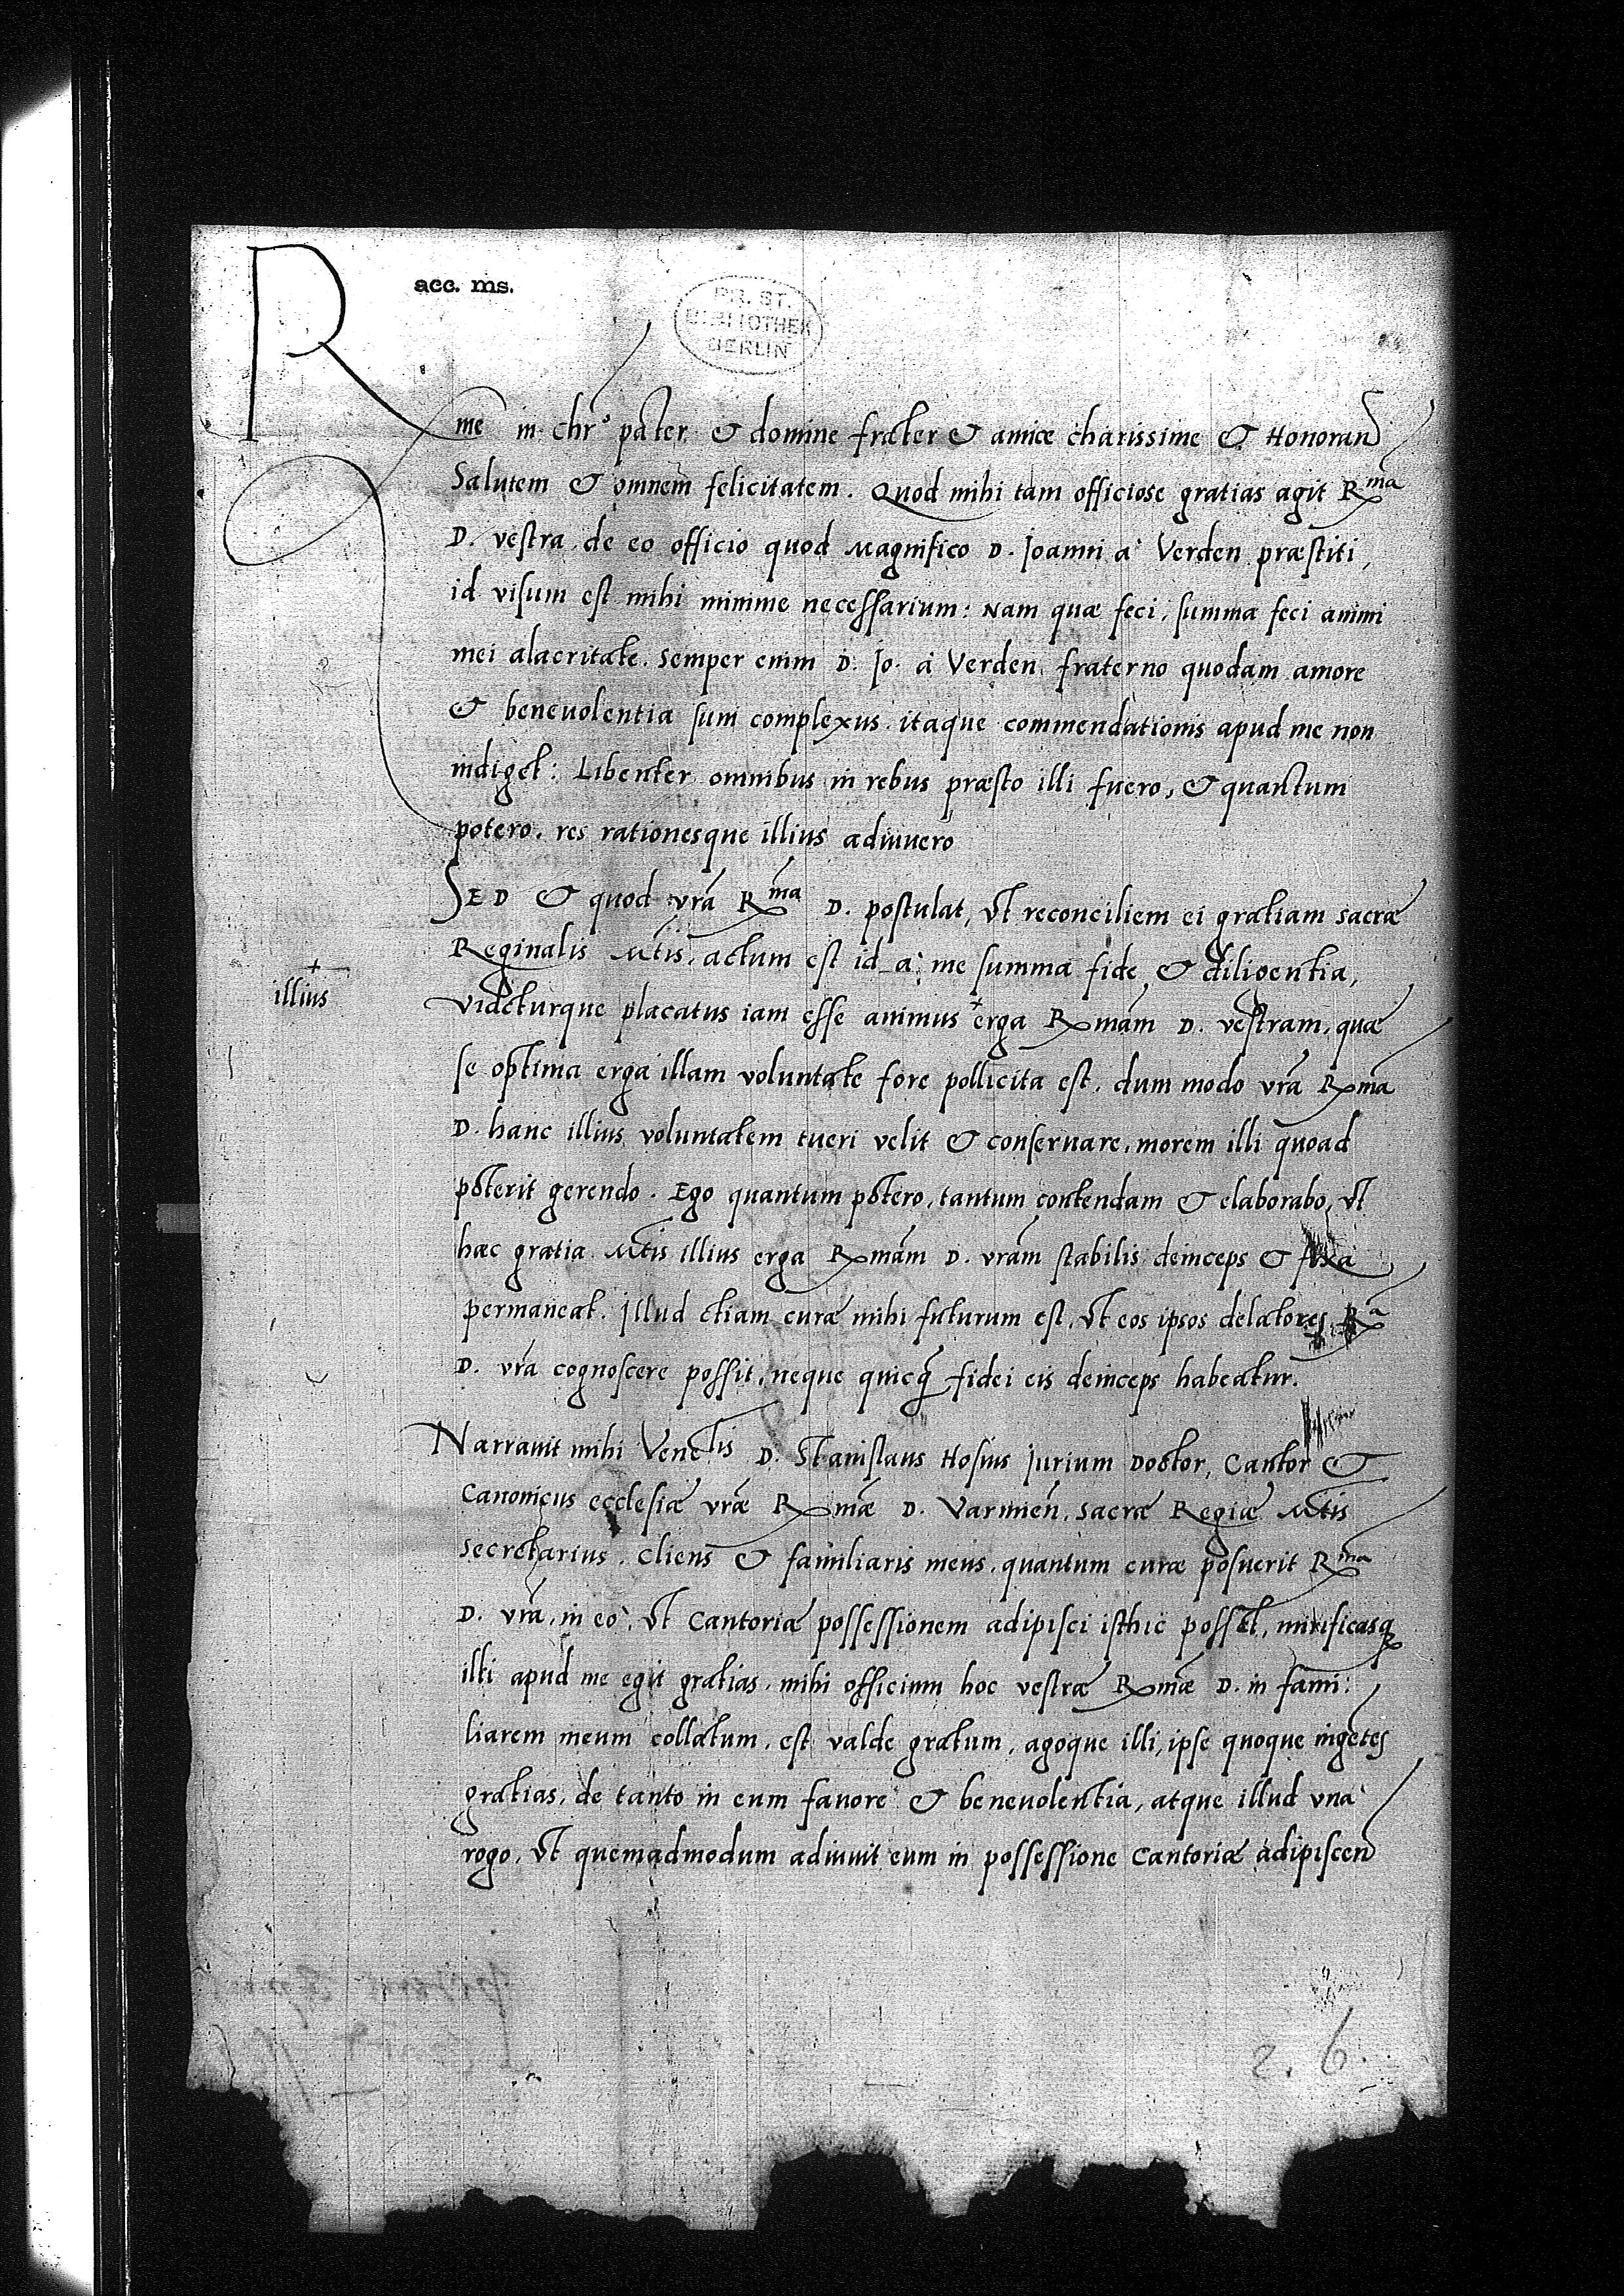 acc. ms.
PR. ST.
BIBLIOTHEK
BERLIN
Rme in Chr̃o pater & domine frater & amice charissime & Honoran̄
Salutem & omnem felicitatem. Quod mihi tam officiose gratias agit Rma
D. vestra de eo officio quod Magnifico D. Joanni à Verden præstiti,
id visum est mihi minime necessarium: Nam quæ feci, summa feci animi
mei alacritate. Semper enim D. Jo. à Verden fraterno quodam amore
& beneuolentia sum complexus. itaque commendationis apud me non
indiget: Libenter omnibus in rebus præsto illi fuero, & quantum
potero, res rationesque illius adiuuero
SED & quod vrã Rma D. postulat, vt reconciliem ei gratiam sacræ
Reginalis Mtis, actum est id à me summa fide & diligentia,
+
illius
videturque placatus iam esse animus + erga Rmãm D. vestram, quæ
se optima erga illam voluntate fore pollicita est, dum modo vrã Rmã
D. hanc illius voluntatem tueri velit & conseruare, morem illi quoad
poterit gerendo. Ego quantum potero, tantum contendam & elaborabo, vt
hæc gratia Mtis illius erga Rmãm D. vrãm stabilis deinceps & fixa
permaneat. Illud etiam curæ mihi futurum est, vt eos ipsos delatores Ra
D. vrã cognoscere possit, neque quicq̃ fidei eis deinceps habeatur.
Narrauit mihi Venetis D. Stanislaus Hosius Jurium Doctor, Cantor &
Canonicus ecclesiæ vræ Rmæ D. Varmieñ. Sacræ Regiæ Mtis
Secretarius. Cliens & familiaris meus, quantum curæ posuerit Rma
D. vrã, in eo, vt Cantoriæ possessionem adipisci isthic posset, mirificasq
illi apud me egit gratias. mihi officium hoc vestræ Rmæ D. in fami:
liarem meum collatum, est valde gratum, agoque illi, ipse quoque ingẽtes
gratias, de tanto in eum fauore & beneuolentia, atque illud vna
rogo, vt quemadmodum adiuuit eum in possessione Cantoriæ adipiscen̄
2. 6.